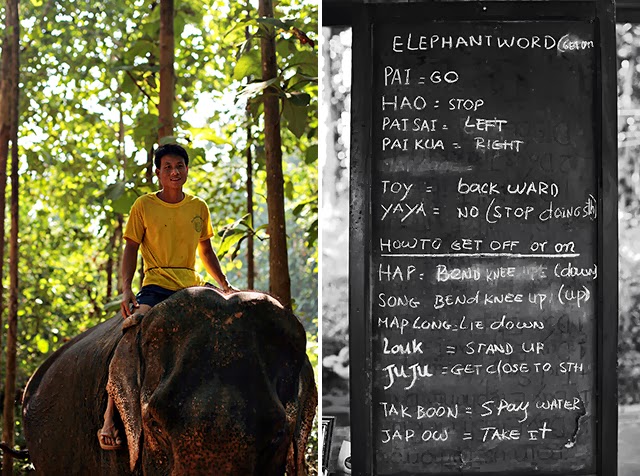 ELEPHANT WORD (GET ON
PAI = GO
HAO = STOP
PAI SAI = LEFT
PAI KUA = RIGHT
TOY = back WARD
YAYA = NO (STOP doing sth)
HOW TO GET OFF OR ON
HAP = BEND KNEE (down)
SONG BEND KNEE UP (up)
MAP LONG = LIE down
LOUK = STAND UP
JUJU = GET CLOSE TO STH
TAK BOON = SPay WATER
JAP OW = TAKE IT